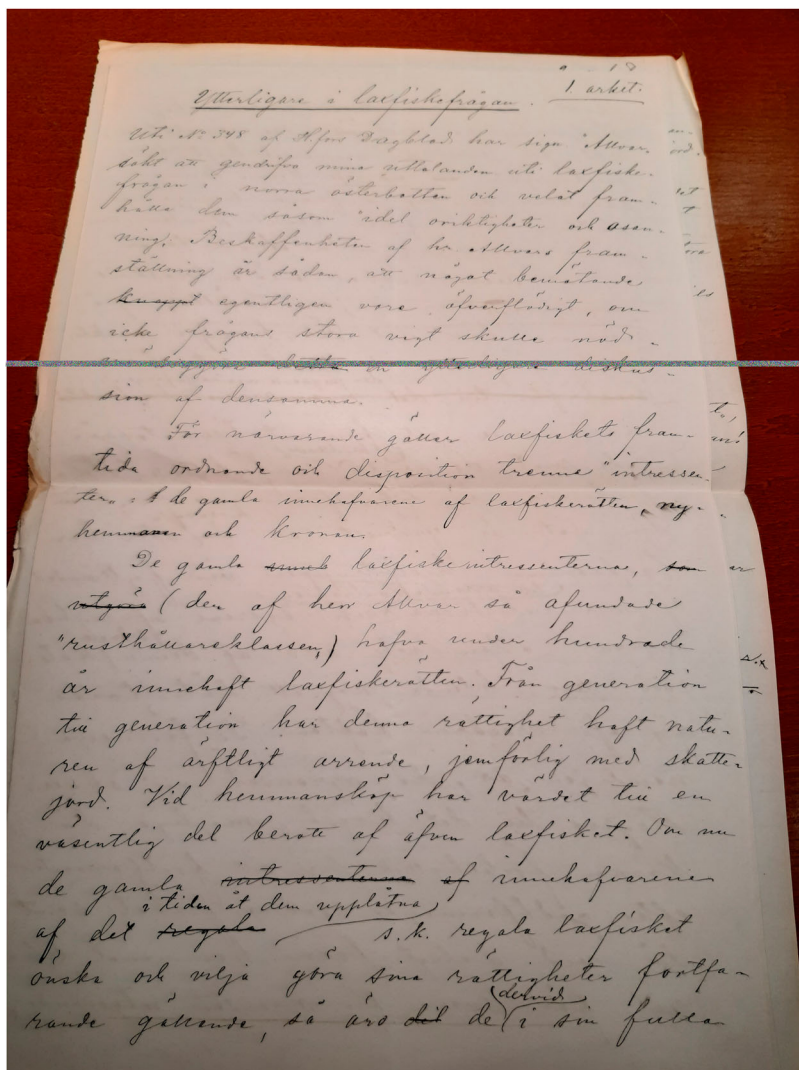 1. arket.
Ytterligare i laxfiskefrågan.
Uti No 348 af H:fors Dagblad har sign "Allvar"
sökt att gendrifva mina uttalanden uti laxfiske-
frågan i norra österbotten och velat fram-
hålla dem såsom "idel oriktigheter och osan-
ning". Beskaffenheten af hr Allvars fram-
ställning är sådan, att något bemötande
knappt egentligen vore öfverflödigt, om
icke frågans stora vigt skulle nöd-
en ytterligare diskus-
sion af densamma.
För närvarande gäller laxfiskets fram-
tida ordnande och disposition trenne "intressen-
ter": de gamla innehafvarene af laxfiskerätten, ny-
hemmanen och kronan.
De gamla laxfiskeintressenterna, som
utgöra (den af herr Allvar så afundade
"rusthållareklassen") hafva under hundrade
år innehaft laxfiskerätten. Från generation
till generation har denna rättighet haft natu-
ren af ärftligt arrende, jemförlig med skatte-
jord. Vid hemmansköp har värdet till en
väsentlig del berott af äfven laxfisket. Om nu
de gamla intressenterna af innehafvarene
i tiden åt dem upplåtna
af det regala s.k. regala laxfisket
önska och vilja göra sina rättigheter fortfa-
dervid
rande gällande, så äro de i sin fulla